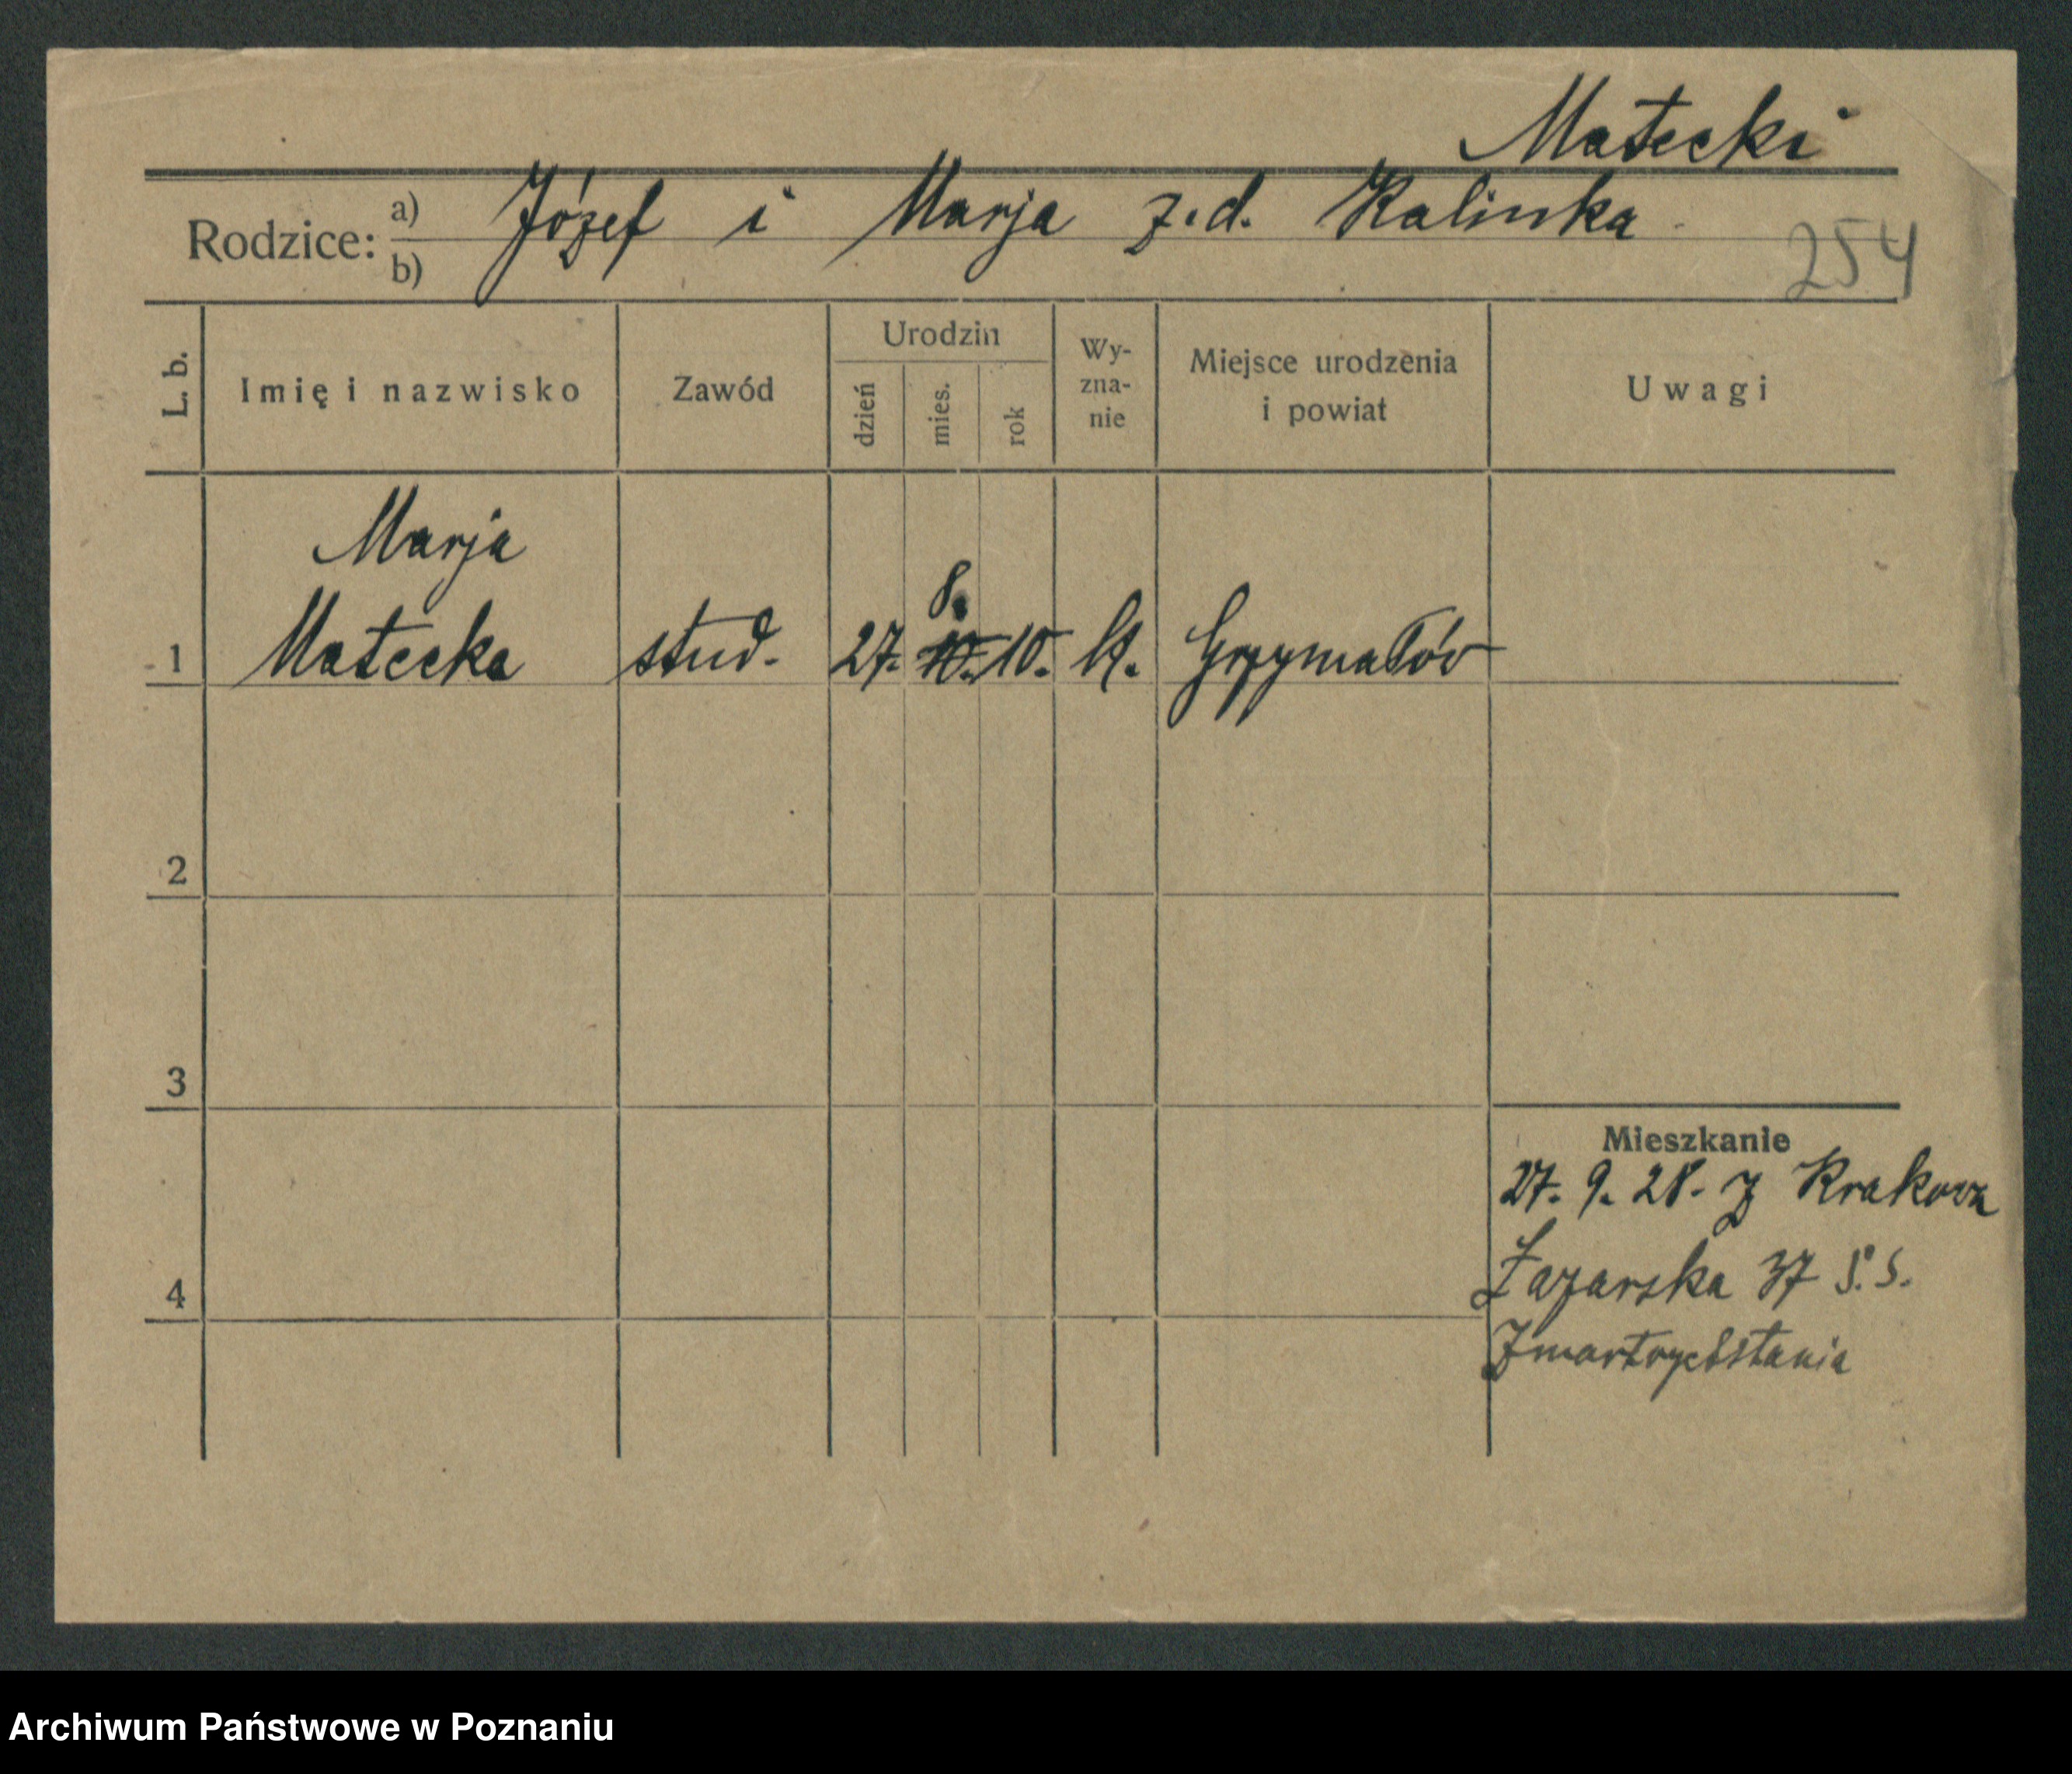 Małecki
Rodzice: a) Józef i Marja z.d. Kalinka
b)
254
L. b.
Imię i nazwisko
Zawód
Urodzin
dzień
mies.
rok
Wy-
zna-
nie
Miejsce urodzenia
i powiat
Uwagi
Marja
8.
1 Małecka stud. 27. 10. 10. Grzymałów
2
3
Mieszkanie
27. 9. 28. z Krakowa
4 Łazarska 37 S.S.
Zmartwychstania
Archiwum Państwowe w Poznaniu